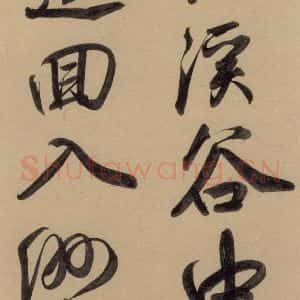 溪谷中
回入
Shufawang.CN